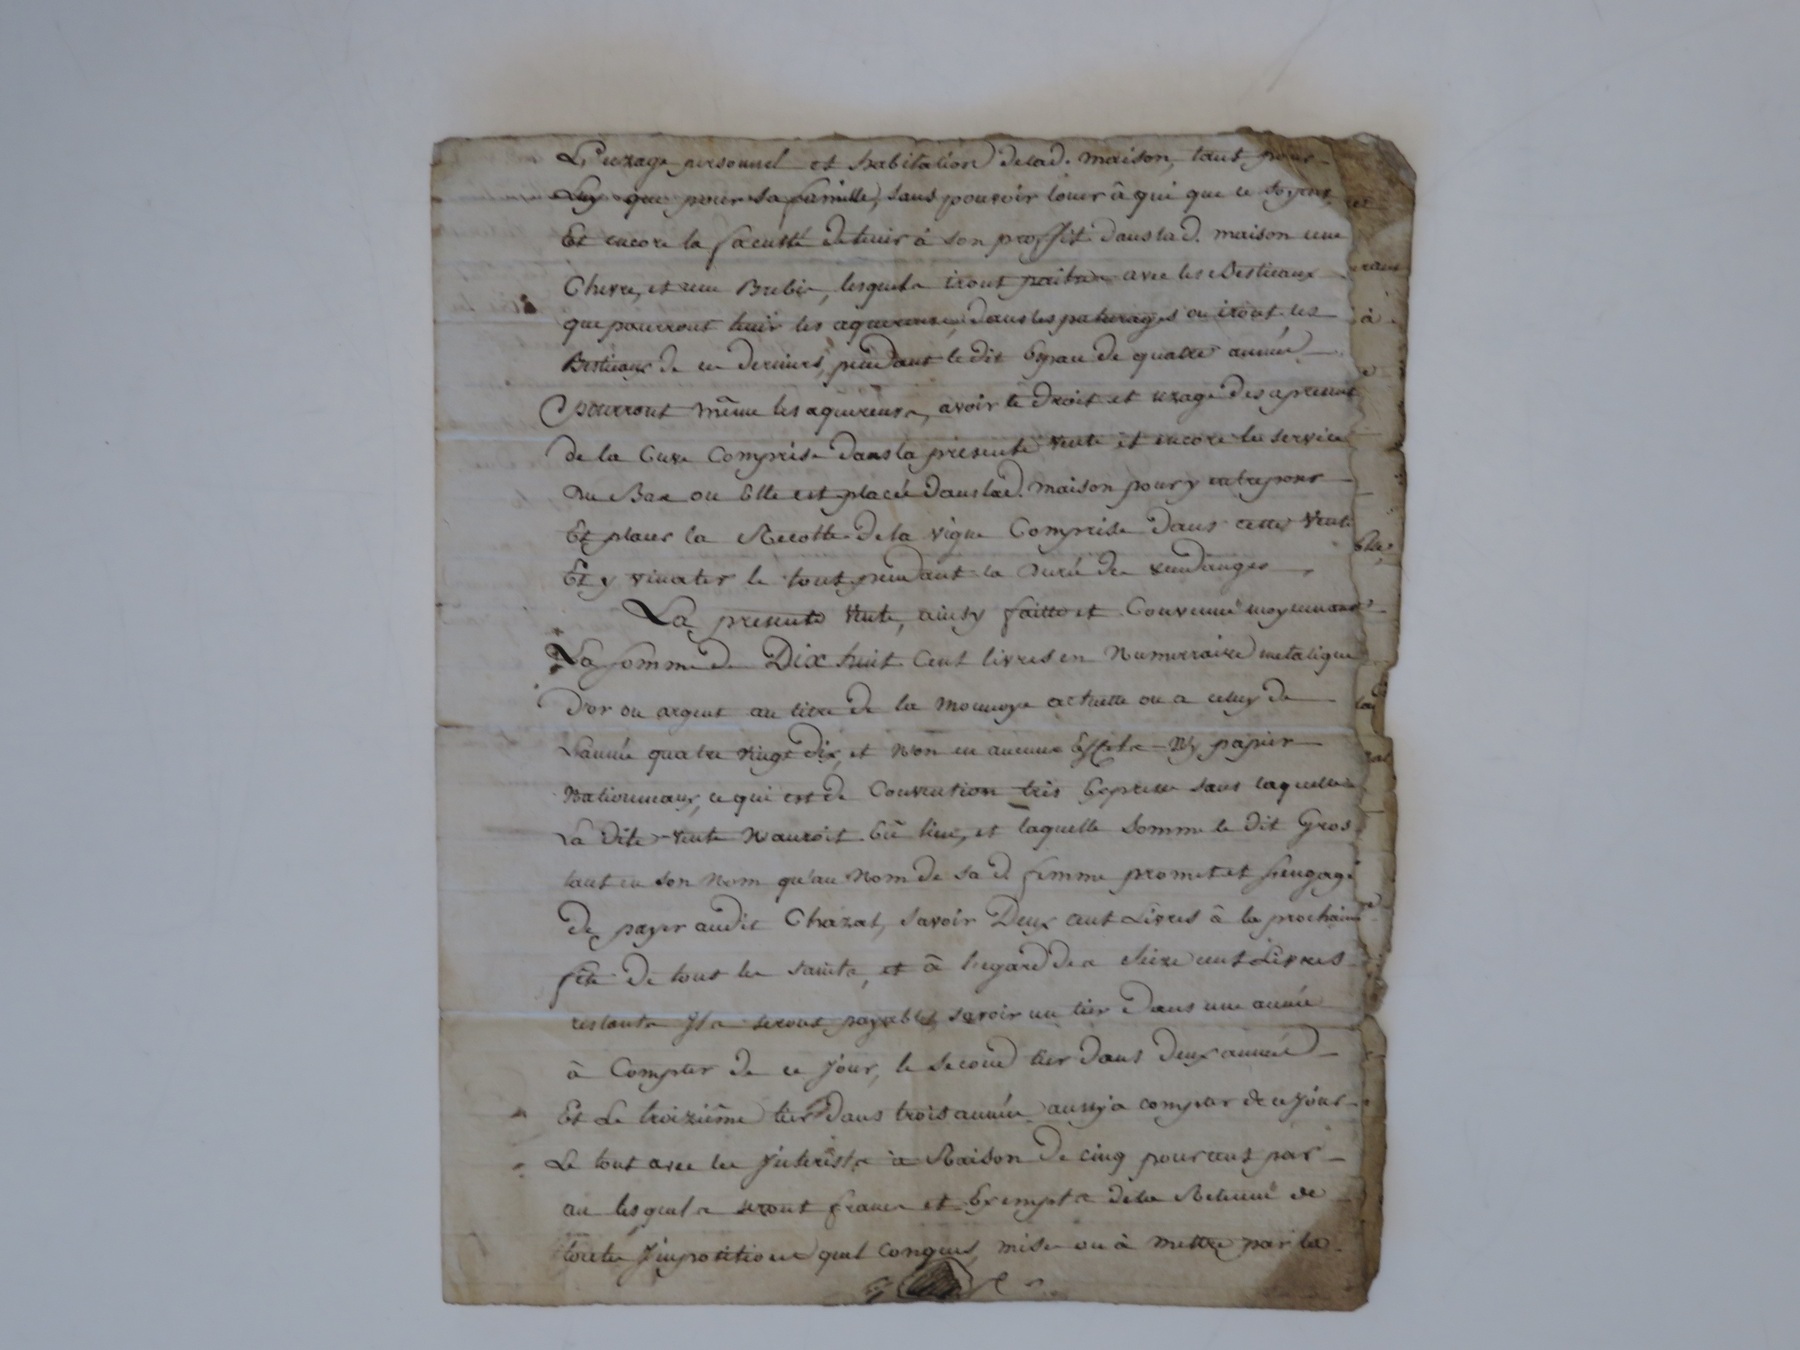 L'uzage personnel et habitation delad. maison, tant pour
Luy que pour sa famille, sans pouvoir louer à qui que ce soyent
Et encore la faculté de tenir à son proffit dans lad. maison une
Chevre, et une Brebis, lesquels iront paitre avec les Bestiaux
que pourront tenir les aquereurs, dans les paturages ou iront les
Bestiaux de ces derniers, pendant le dit Espace de quatre année
pourront même les aquereurs, avoir le droit et uzage des apresent
de la Cuve Comprise dans la presente vente et encore les service
du Bas ou Elle est placée dans lad. maison pour y entreposer
Et placer la Recolte de la vigne Comprise dans cette vente
Et y vinater le tout pendant la durée des vendanges
La presente vente, ainsy faitte et Convenue moyennant
La somme de Dix huit Cent livres en Numerraire metalique
D'or ou argent au titre de la monnoye actuelle ou a celuy de
L'année quatre vingt dix, et non en aucuns Effets Ny papier
Nationnaux, ce qui est de Convention très Expresse sans laquelle
La dite vente N'auroit Eü lieu, et laquelle somme le dit Gros
tant en son Nom qu'au Nom de sa d. femme promet et s'engage
de payer audit Chazal, savoir Deux cent Livres à la prochaine
fête de tous les saints, et à l'egard des seize cent Livres
restants Ils seront payables savoir un tier dans une année
à Compter de ce jour, le second tier dans deux année
Et Le troizième tier dans trois année aussy à compter de ce jour
Le tout avec les Interêsts à Raison de cinq pour cent par
an lesquels seront francs et Exempts de la Retenue de
toutes Impositions quel conques, mise ou à mettre par la